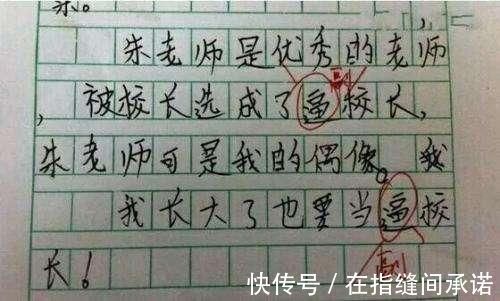 朱老师是优秀的老师
副
,被校长选成了逼校长,
朱老师可是我的偶像。我
我长大了也要当逼校
长!
副
快传号/在指缝间承诺